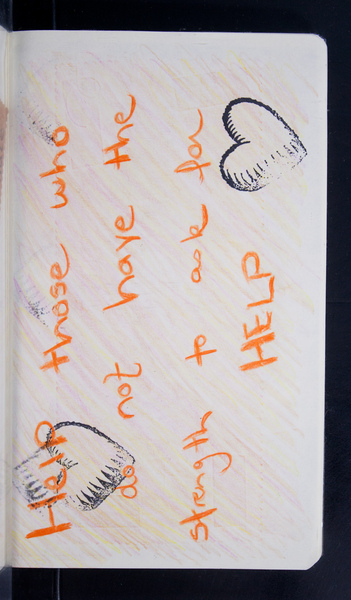 Help those who
do not have the
strength to ask for
HELP